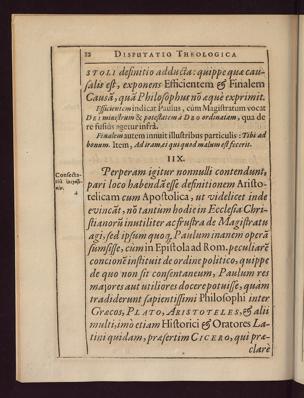 22 DISPUTATIO THEOLOGICA
STOLI definitio adducta: quippe quæ cau-
salis est, exponens Efficientem & Finalem
Causã, quã Philosophus nõ æquè exprimit.
Efficientem indicat Paulus, cùm Magistratum vocat
DEI ministrum & potestatem à DEO ordinatam, qua de
re fusius agetur infrà.
Finalem autem innuit illustribus particulis: Tibi ad
bonum. Item, Ad iram, ei qui quod malum est fecerit.
IIX.
Perperam igitur nonnulli contendunt,
pari loco habendã esse definitionem Aristo-
Consecta-
telicam cum Apostolica, ut videlicet inde
evincãt, nõ tantum hodie in Ecclesia Chri-
4
stianorũ inutiliter ac frustra de Magistratu
agi, sed ipsum quoq, Paulum inanem operã
sumsisse, cùm in Epistola ad Rom. peculiarẽ
concionẽ instituit de ordine politico, quippe
de quo non sit consentaneum, Paulum res
majores aut utiliores docere potuisse, quàm
tradiderunt sapientissimi Philosophi inter
Græcos, PLATO, ARISTOTELES, & alii
multi, imò etiam Historici & Oratores La-
tini quidam, præsertim CICERO, qui præ-
clarè